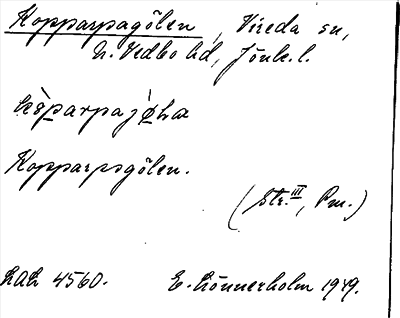 Kopparpagölen, Vireda sn,
N. Vedbo hd, Jönk. l.
Kopparpagölen.
(Str. III, Pm.)
LAL 4560. E. Lönnerholm 1949.